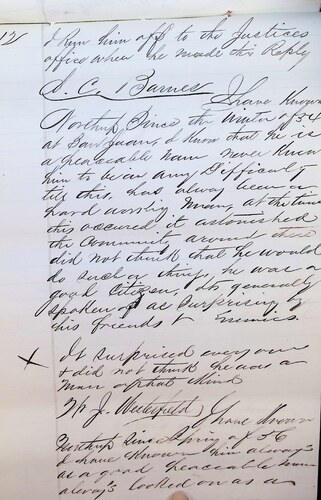 12
I Run him off to the Justices
office when he made this Reply
S. C. Barnes I have Known
Northup Since the Winter of 54
at San Juan, I Know that he is
a peaceable man never Knew
him to be in any Difficulty
till this, has always been a
hard working man, at the time
this occured it astonished
the Community around there
did not think that he would
do such a thing, he was a
good Citizen, its generally
spoken of as surprising by
his friends & Enemies.
X It surprised every one
& did not think he was a
Man of that Kind
Wm J. Westerfield, I have Known
Northup Since Spring of 56
I have Known him always
as a good peaceable man
always looked on as a